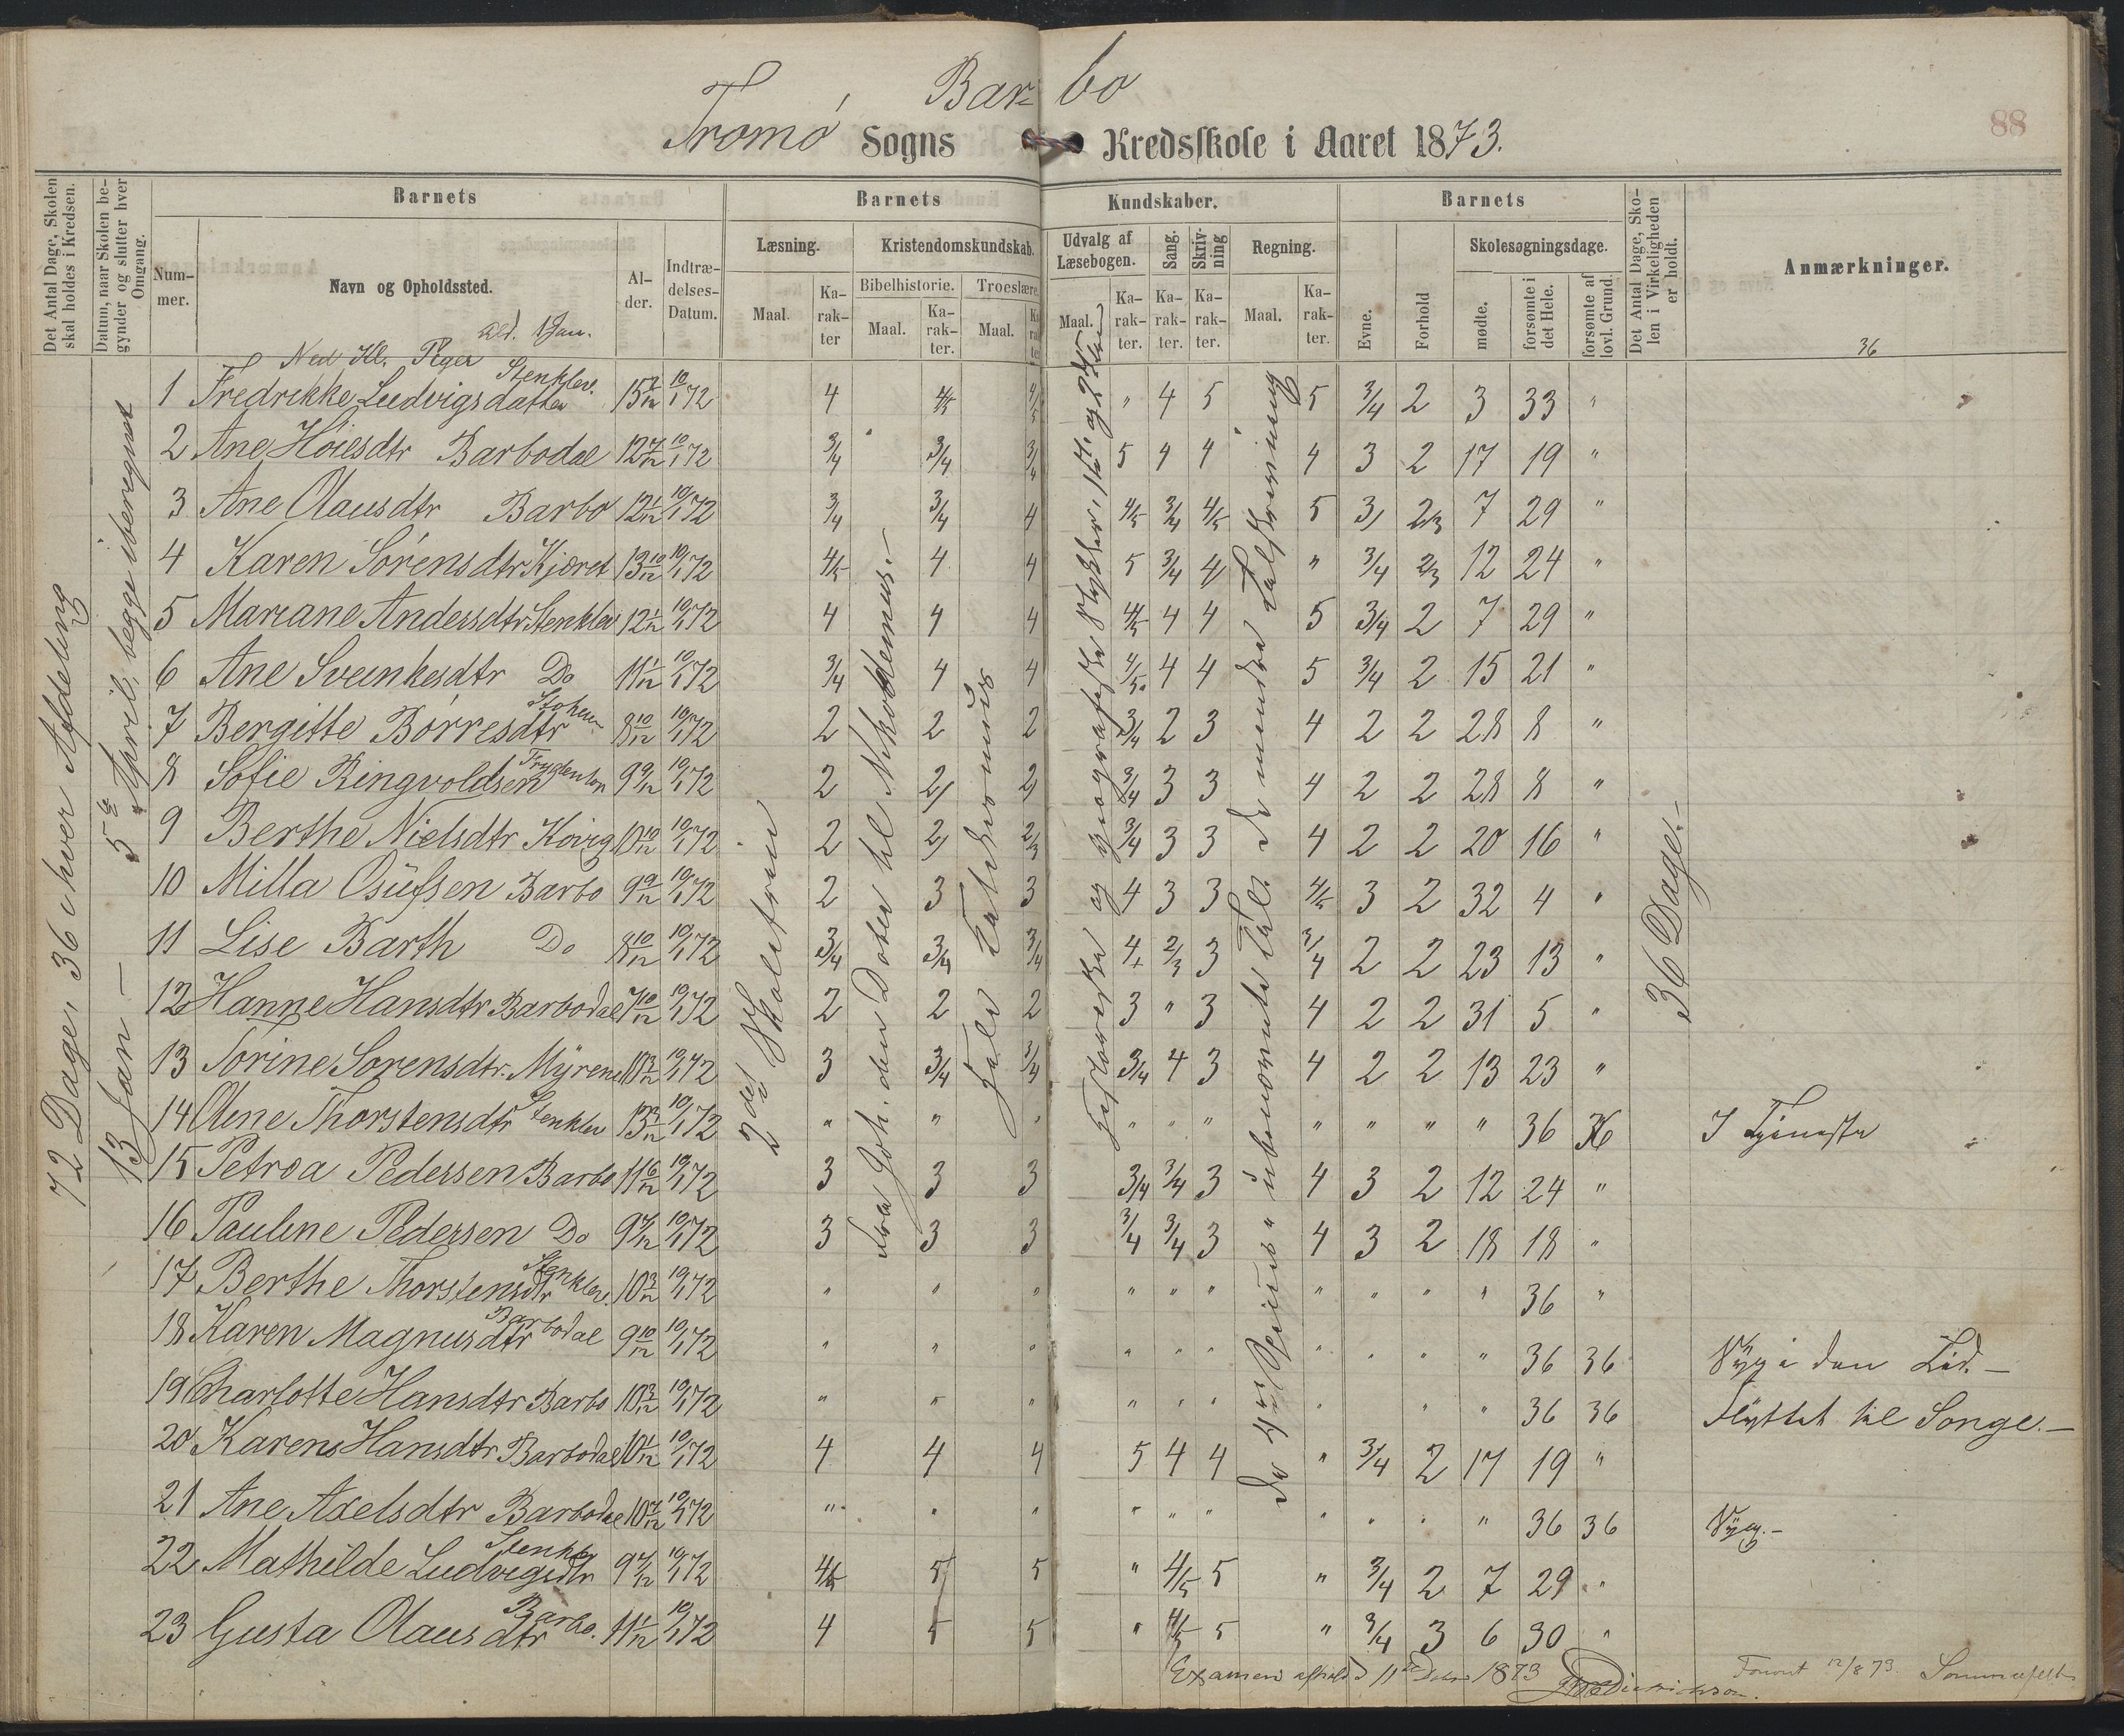 Barbo
Tromø Sogns Kredsskole i Aaret 1873.
88
Det Antal Dage, Skolen skal holdes i Kredsen.
Datum, naar Skolen begynder og slutter hver Omgang.
Barnets
Nummer.
Navn og Opholdssted.
Alder.
Indtrædelses-Datum.
Barnets Kundskaber.
Læsning.
Maal.
Karakter
Kristendomskundskab.
Bibelhistorie.
Maal.
Karakter.
Troeslære.
Maal.
Karakter
Udvalg af Læsebogen.
Maal.
Karakter.
Sang.
Karakter.
Skrivning
Karakter.
Regning.
Maal.
Karakter.
Barnets
Evne.
Forhold
Skolesøgningsdage.
mødte.
forsømte i det Hele.
forsømte af lovl. Grund.
Det Antal Dage, Skolen i Virkeligheden er holdt.
Anmærkninger.
36
72 Dage, 36 i hver Afdeling
13 Jan – 5te April, begge iberegnet
Ned. Kl. Piger Ald. 1 Jan.
2det Skoletrin
Fra Joh. den Døber til Nikodemus.–
36 Dage.–
1 Fredrikke Ludvigsdatter Stenklev. 15 7/12 10/1 72 4 4/5 4/5 " 4 5 5 3/4 2 3 33 "
2 Ane Høiesdtr Barbodal 12 7/12 10/1 72 3/4 3/4 3/4 5 4 4 4 3 2 17 19 "
3 Ane Olausdtr Barbo 12 1/12 10/1 72 3/4 3/4 4 4/5 3/4 4/5 5 3 2/3 7 29 "
4 Karen Sørensdtr Kjæret 13 10/12 10/1 72 4/5 4 4 5 3/4 4 " 3/4 2/3 12 24 "
5 Mariane Andersdtr Stenklev 12 1/12 10/1 72 4 4 4 4/5 4 4 5 3/4 2 7 29 "
6 Ane Sveinkesdtr Do 11 1/12 10/1 72 3/4 4 4 4/5 4 4 5 3/4 2 15 21 "
7 Bergitte Børresdtr 8 10/12 10/1 72 2 2 2 3/4 2 3 4 2 2 28 8 "
8 Sofie Ringvoldsen 9 9/12 10/1 72 2 2 2 3/4 3 3 4 2 2 28 8 "
9 Berthe Nielsdtr 10 10/12 10/1 72 2 2 2/3 3/4 3 3 4 2 2 20 16 "
10 Milla Osufsen Barbo 9 9/12 10/1 72 2 3 3 4 3 3 4/5 3 2 32 4 "
11 Lise Barth Do 8 10/12 10/1 72 3/4 3/4 3/4 4+ 2/3 3 3/4 2 2 23 13 "
12 Hanne Hansdtr. Barbodal 7 10/12 10/1 72 2 2 2 3 " 3 4 2 2 31 5 "
13 Torine Sorensdtr. Myrene 10 3/12 10/1 72 3 3/4 3/4 3/4 4 3 4 2 2 13 23 "
14 Olene Thorstensdtr Stenklev 10/1 72 " " " " " " " " " " 36 36 I Tjeneste
15 Petrea Pedersen Barbo 11 6/12 10/1 72 3 3 3 3/4 3/4 3 4 3 2 12 24 "
16 Pauline Pedersen Do 9 7/12 10/1 72 3 3 3 3/4 3/4 3 4 3 2 18 18 "
17 Berthe Thorstensdtr Stenklev. 10 3/12 10/1 72 " " " " " " " " " " 36 "
18 Karen Magnusdtr Barbodal 9 10/12 10/1 72 " " " " " " " " " " 36 36 Syg i den Tid.–
19 Charlotte Hansdtr Barbo 10 3/12 10/1 72 " " " " " " " " " " 36 36 Flyttet til Songe.–
20 Karens Hansdtr Barbodal 10 1/12 10/1 72 4 4 4 5 4 4 " 3/4 2 17 19 "
21 Ane Axelsdtr Barbodal 10 7/12 10/1 72 " " " " " " " " " " 36 36 Syg.–
22 Mathilde Ludvigsdtr Stenklev 9 7/12 10/1 72 4/5 5 5 " 4/5 5 " 3/4 2 7 29 "
23 Gusta Olausdtr Barbo. 11 1/12 10/1 72 4 5 5 " 4/5 5 " 3/4 3 6 30 "
Examen afholdt 11te 1873
12/8 73 Sommerfeldt